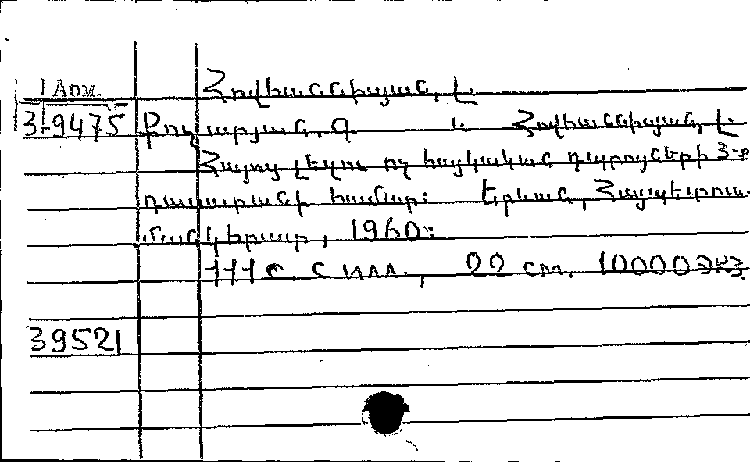 Հովհաննիսյան, Լ.
1 Арм.
3-9475 Քոչարյան, Գ. և Հովհաննիսյան, Լ.
Հայոց լեզու ոչ հայկական դպրոցների 3-րդ
դասարանի համար: Երևան, Հայպետուս-
մանկհրատ, 1960:
111 с. с илл., 22 см. 10000 экз.
39521